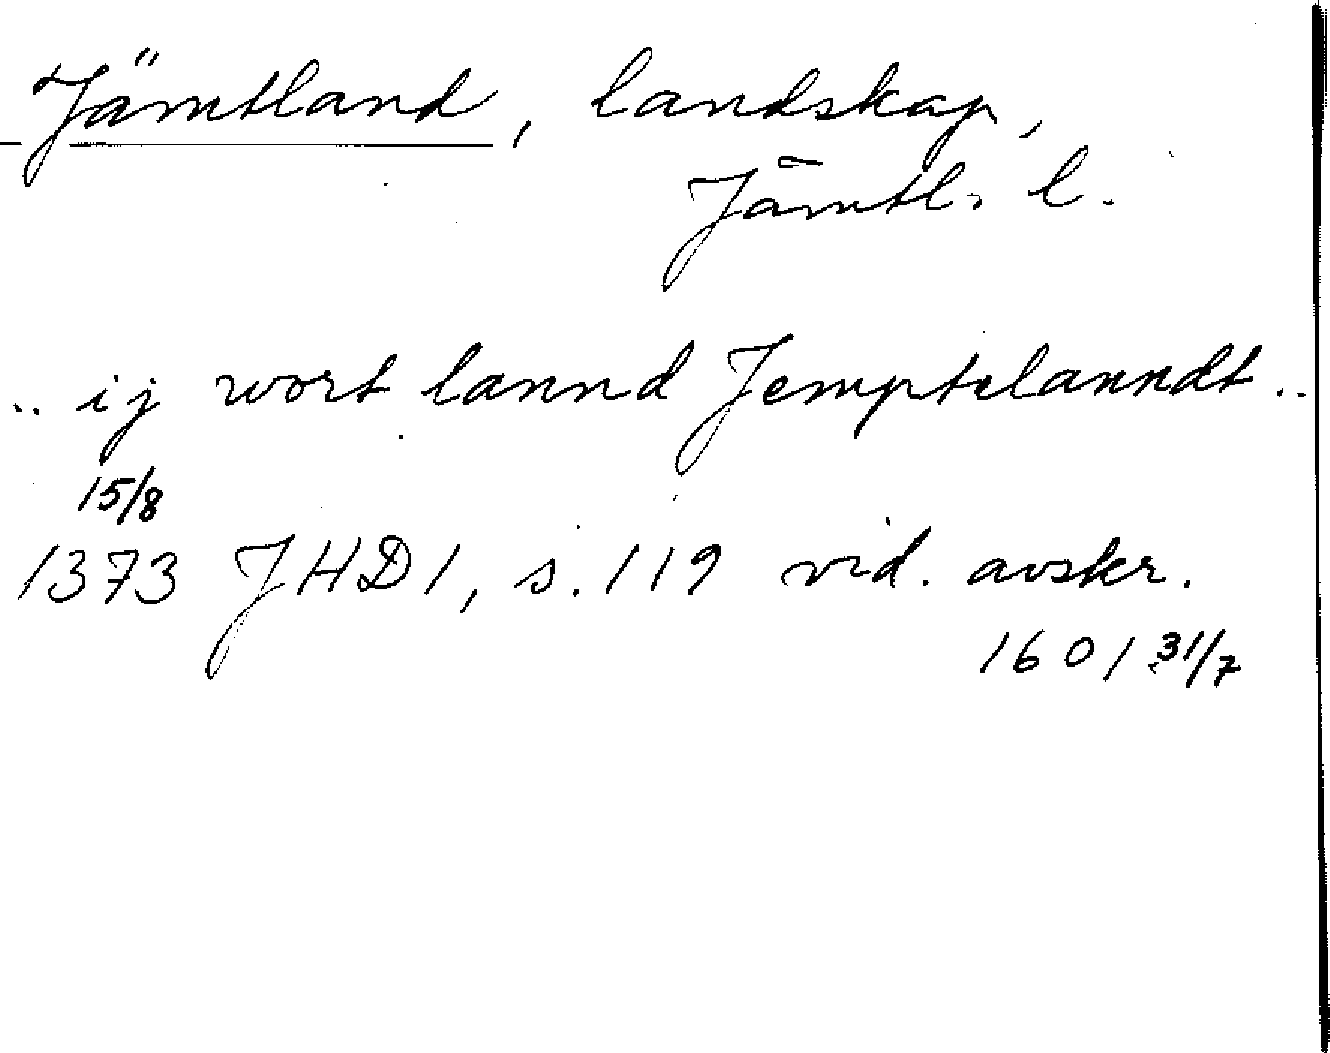 Jämtland, landskap,
Jämtl. l.
.. ij wort lannd Jemptelanndt ..
15/8
1373 JHD 1, s. 119 vid. avskr.
1601 31/7